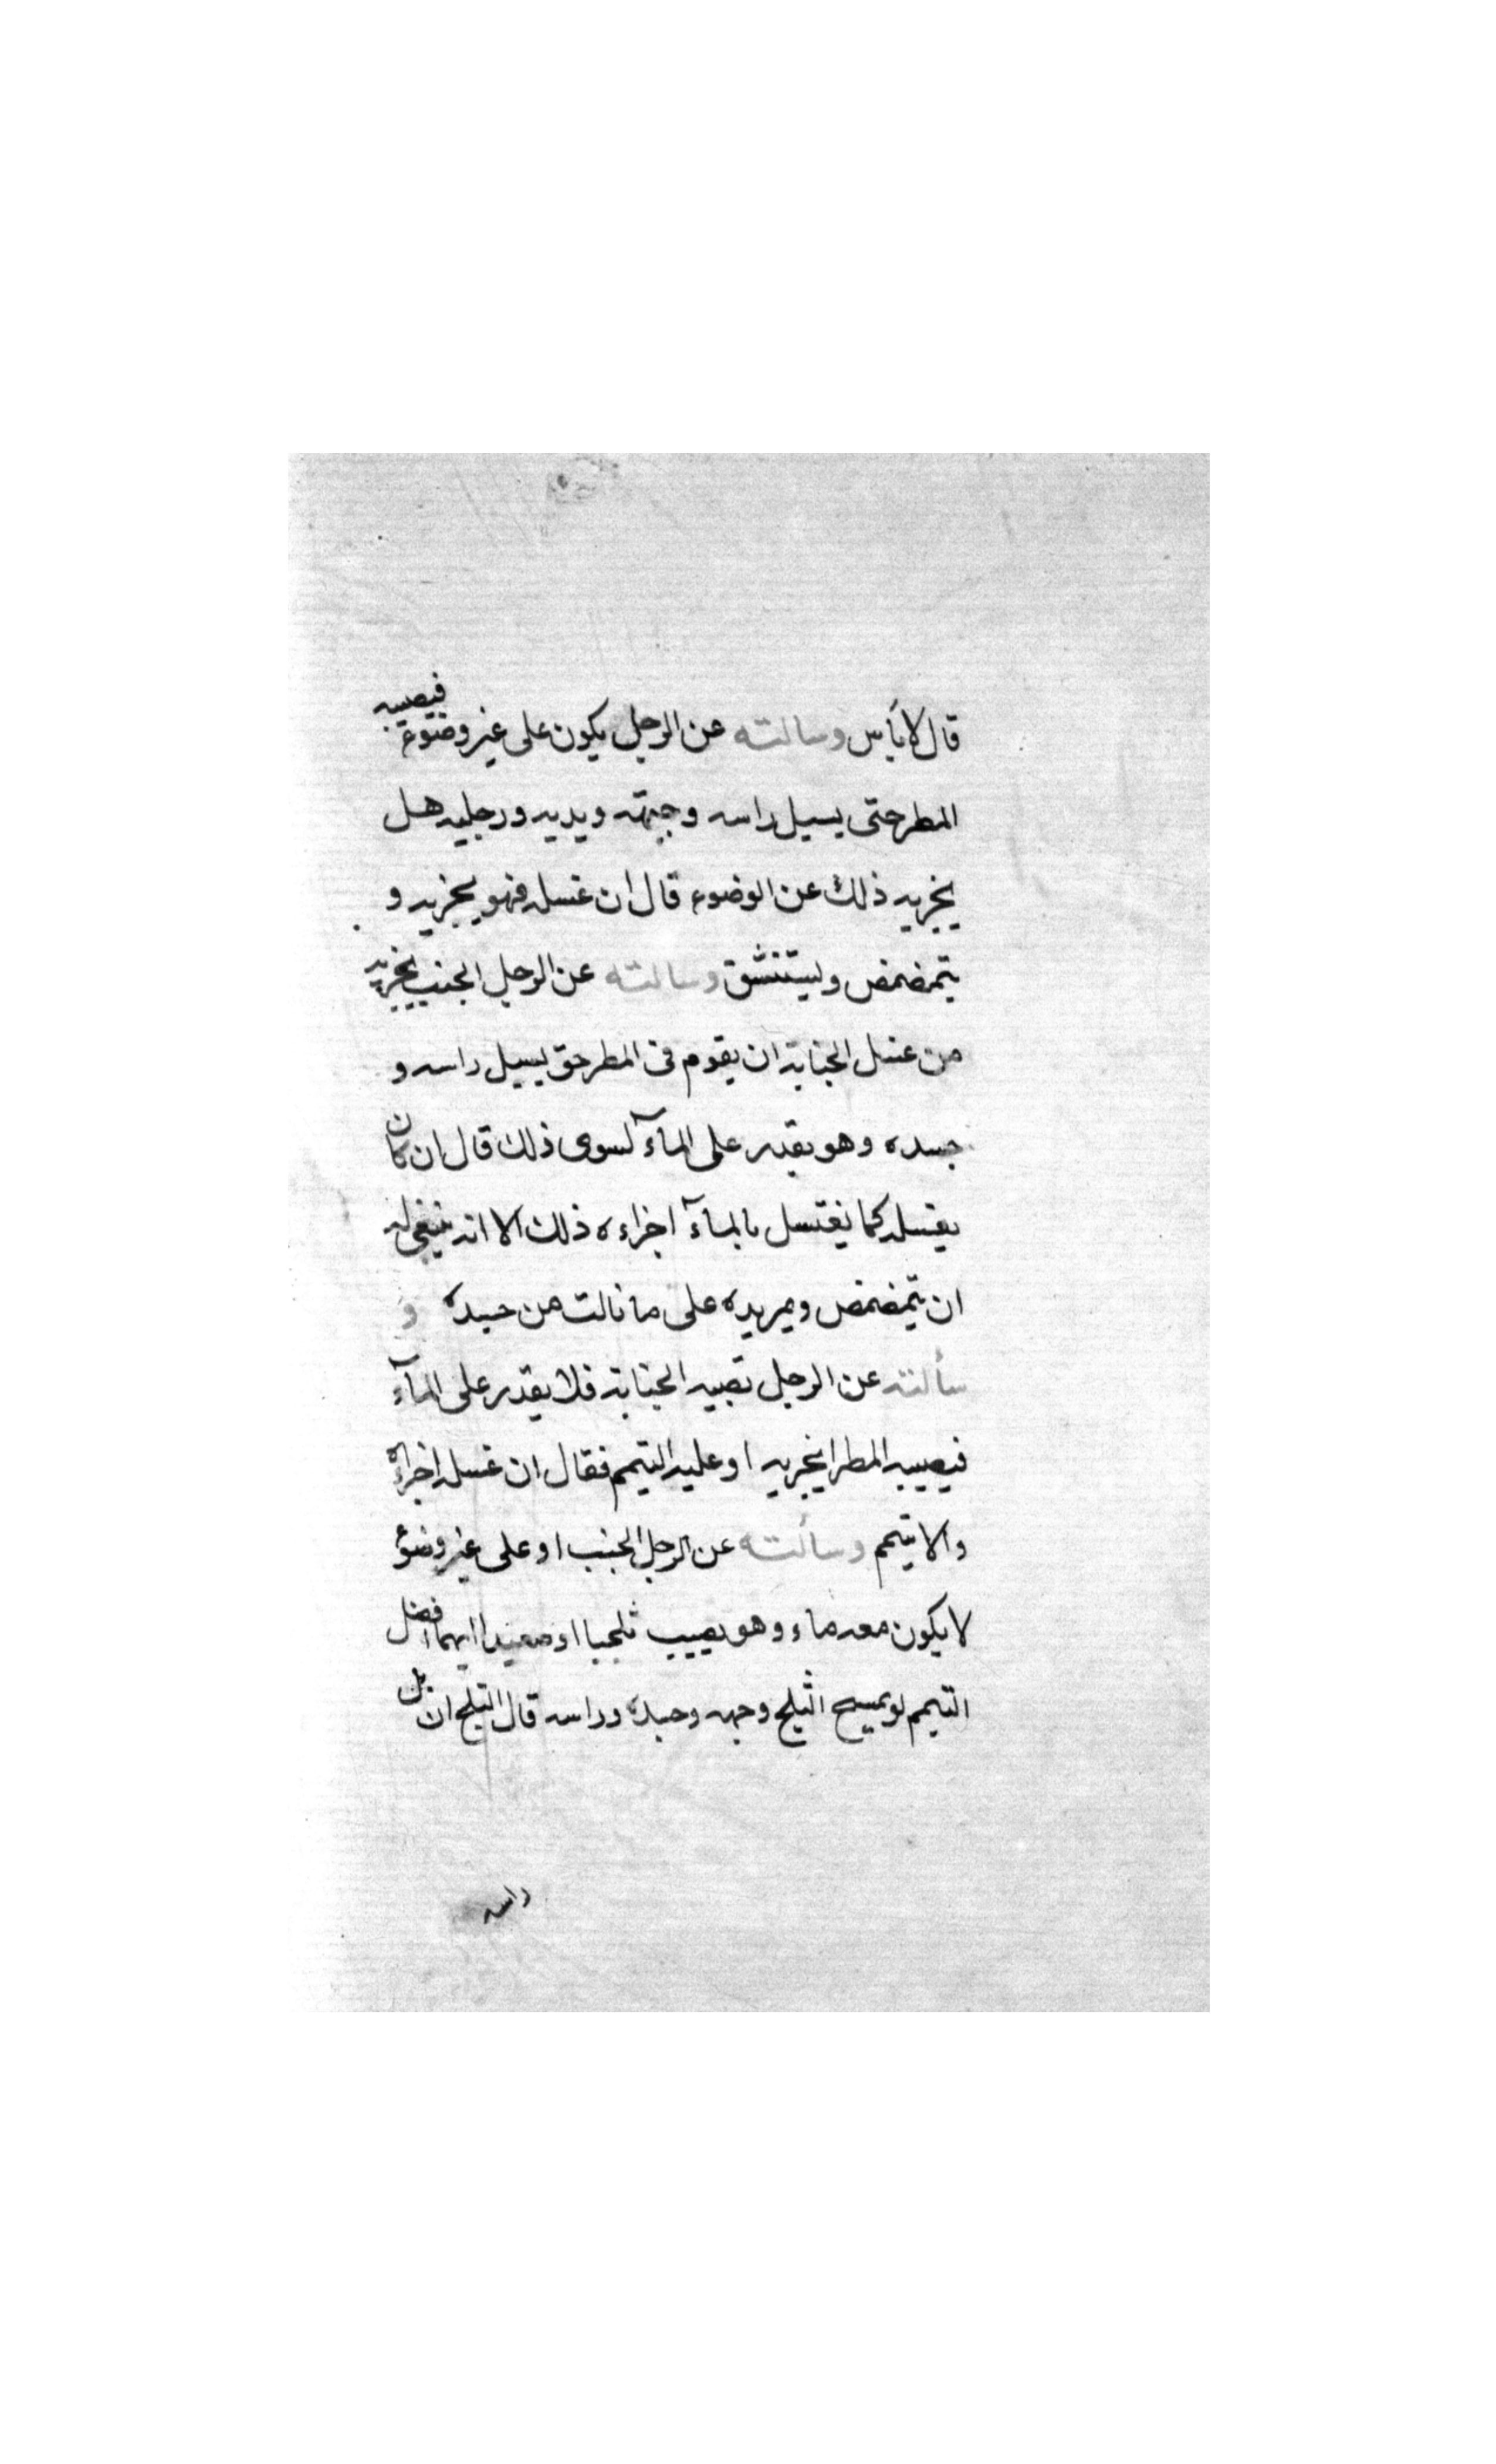 قال لا بأس وسالته عن الرجل يكون على غير وضوء فيصيبه
المطر حتى يسيل راسه وجبهته ويديه ورجليه هل
يجزيه ذلك عن الوضوء قال ان غسله فهو يجزيه و
يتمضمض وليستنشق وسالته عن الرجل الجنب يجزيه
من غسل الجنابة ان يقوم فى المطر حتى يسيل راسه و
جسده وهو يقدر على المآء لسوى ذلك قال ان كان
يغسله كما يغتسل بالمآء اجزاءه ذلك الا انه ينبغى له
ان يتمضمض ويمر يده على ما نالت من جسده و
سألته عن الرجل تصيبه الجنابة فلا يقدر على المآء
فيصيبه المطر ايجزيه او عليه التيمم فقال ان غسله اجزاءه
والا تيمم وسألته عن الرجل الجنب او على غير وضوء
لا يكون معه ماء وهو يصيب ثلجا او صعيدا ايهما افضل
التيمم او يمسح الثلج وجهه وجسده وراسه قال الثلج ان بل
راسه